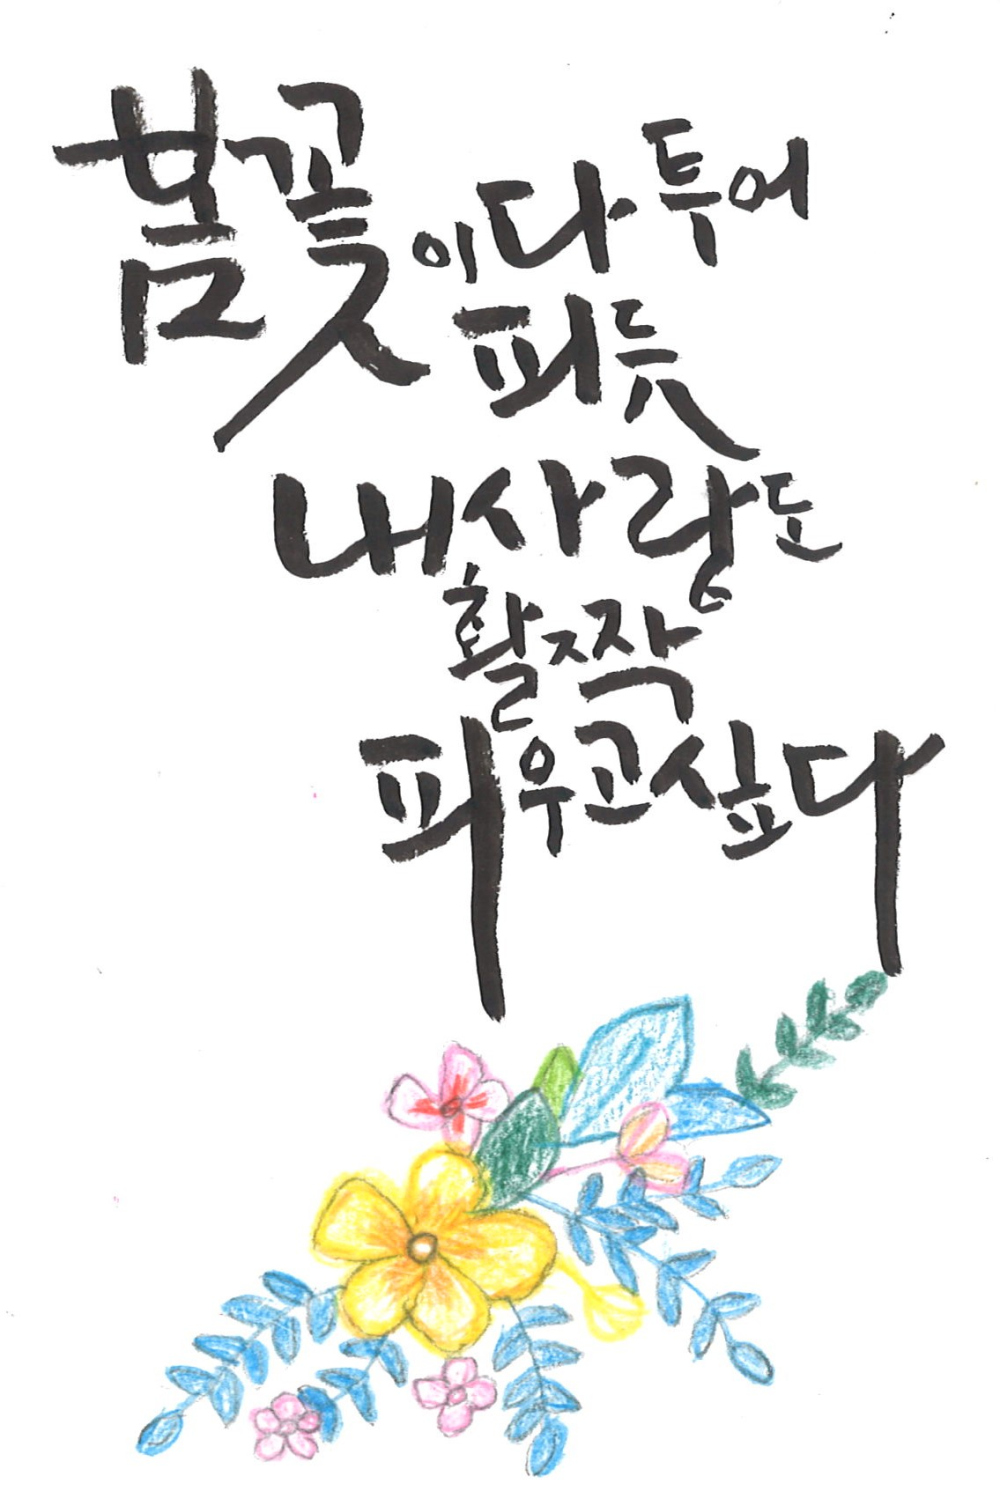 봄꽃이다투어
피듯
내사랑도
활짝
피우고싶다